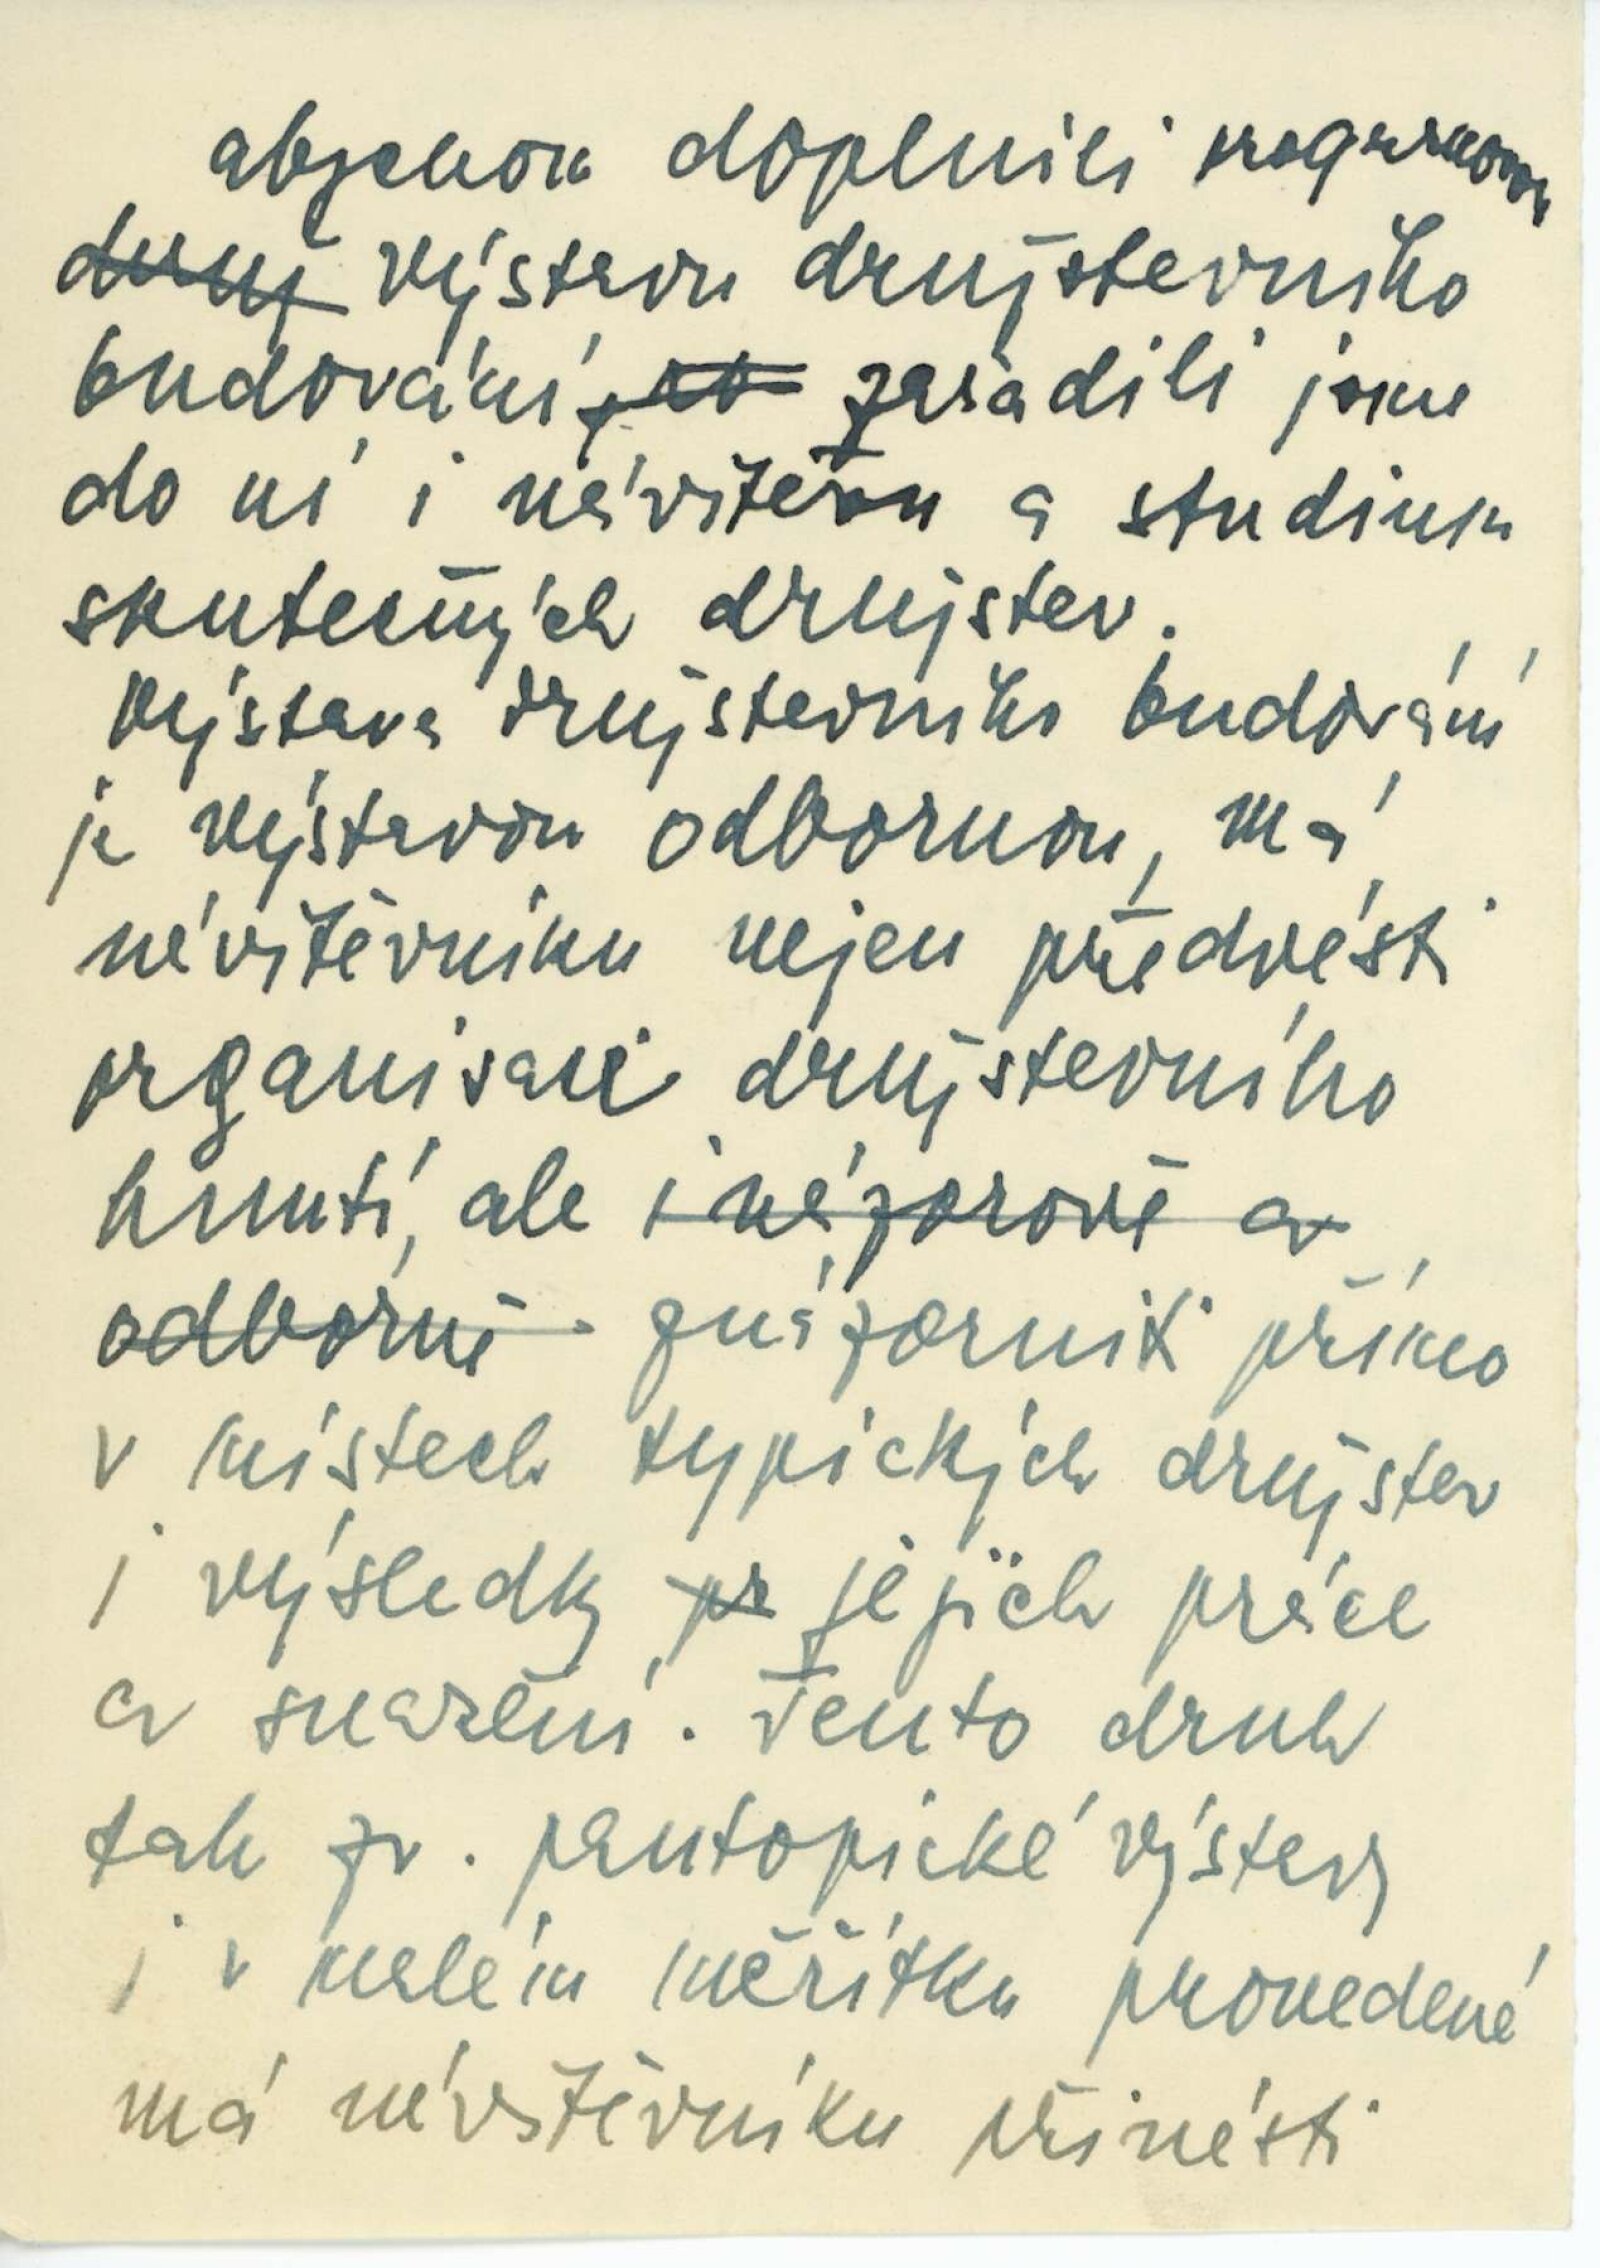 abychom doplnili
druž výstavu družstevního
budování, zařadili jsme
do ní i návštěvu a studium
skutečných družstev.
Výstava družstevního budování
je výstavou odbornou, má
návštěvníku nejen předvésti
organisaci družstevního
hnutí, ale i názorově a
odborně znázorniti přímo
v místech typických družstev
i výsledky pr jejich práce
a snažení. Tento druh
tak zv. pantopické výstavy
i v malém měřítku provedené
má návštěvníku přinésti